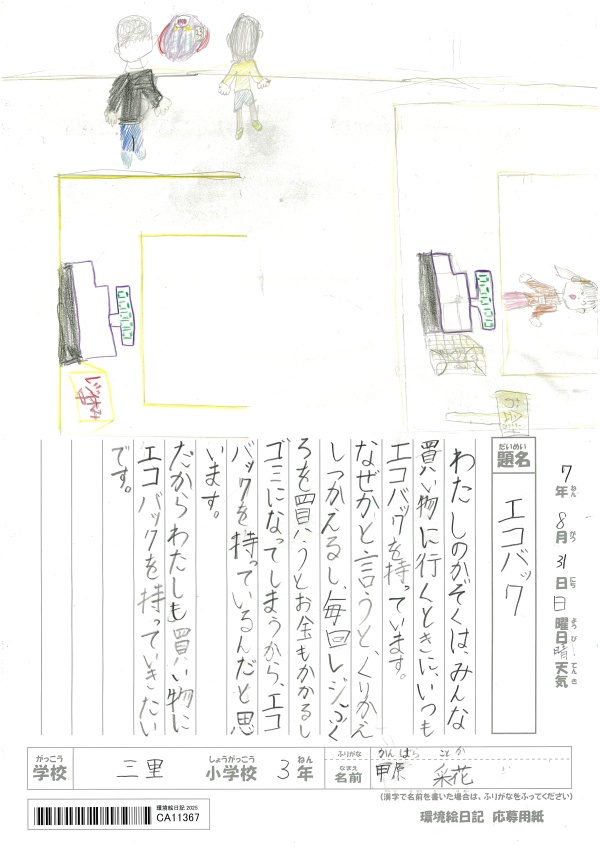 レジ休み
7年 8月 31日 日曜日 晴天気
ねん がつ にち ようび てんき
だいめい
題名
エコバック
わたしのかぞくは、みんな
買い物に行くときに、いつも
エコバックを持っています。
なぜかと言うと、くりかえ
しつかえるし、毎回レジぶく
ろを買うとお金もかかるし
ゴミになってしまうから、エコ
バックを持っているんだと思
います。
だからわたしも買い物に
エコバックを持っていきたい
です。
がっこう しょうがっこう ねん
学校 三里 小学校 3年
ふりがな かんばら ことか
なまえ
名前 甲原 采花
(漢字で名前を書いた場合は、ふりがなをふってください)
環境絵日記 2025
CA11367
環境絵日記 応募用紙